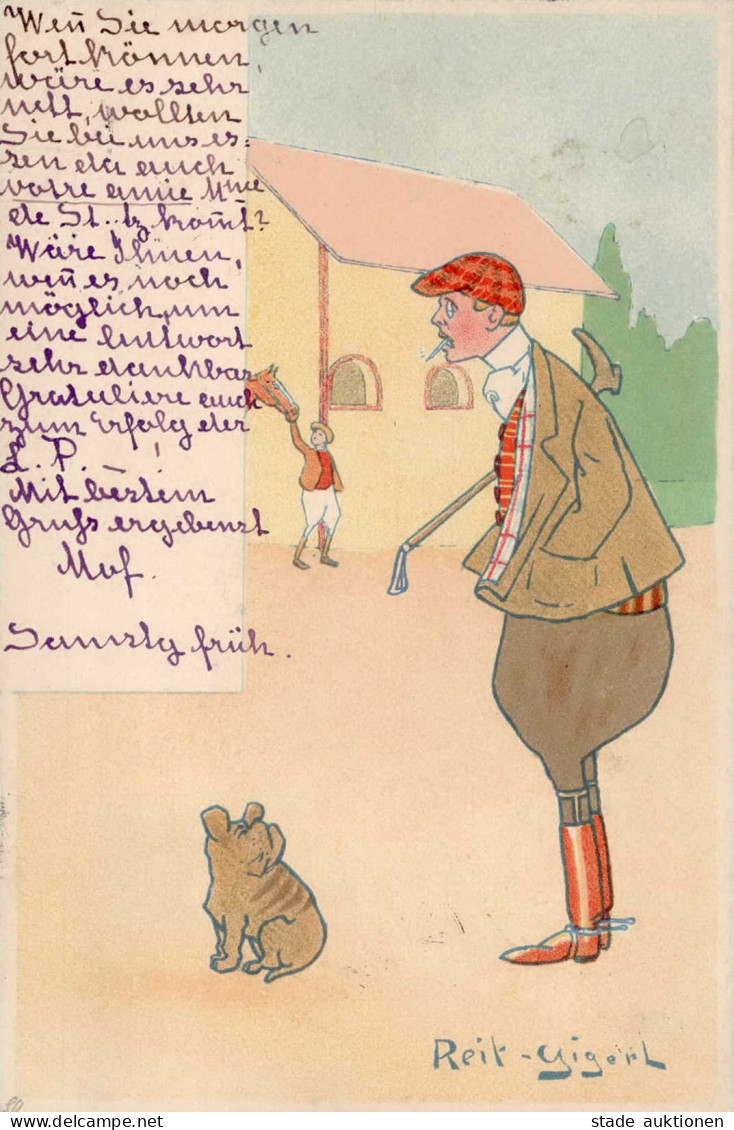 Weñ Sie morgen
fort können,
wäre es sehr
nett, wollten
Sie bei uns es=
sen da auch
votre amie Mme
de St..tz kom̄t?
Wäre Ihnen,
weñ es noch
möglich, um
eine Antwort
sehr dankbar
Gratuliere auch
zum Erfolg der
L. P. !
Mit bestem
Gruss ergebenst
Mof.
Samstg früh.
Reit-Gigerl
50
stade auktionen